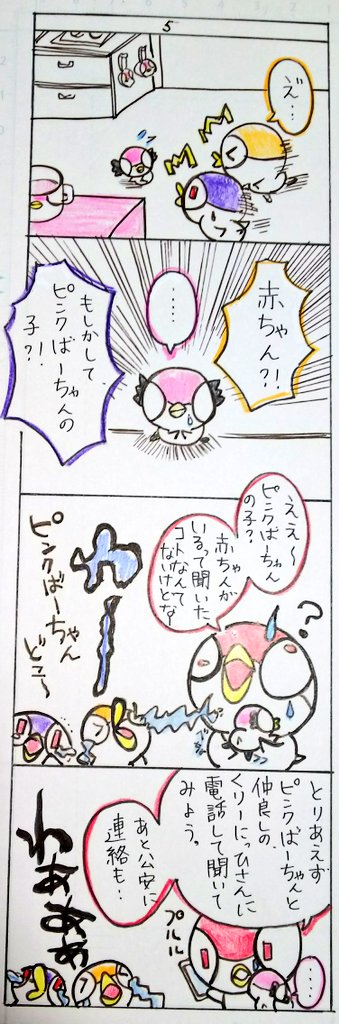 5
え゛…
赤ちゃん?!
……
もしかして、
ピンクばーちゃんの
子?!
ええ〜
ピンクばーちゃん
の子?
赤ちゃんが
いるって聞いた
コトなんて
ないけどな〜
?
カー
ピンクばーちゃん
どこ〜
とりあえず
ピンクばーちゃんと
仲良しの
くりーにっひさんに
電話して聞いて
みよう。
あと公安に
連絡も…
プルル
……
わぁぁぁ